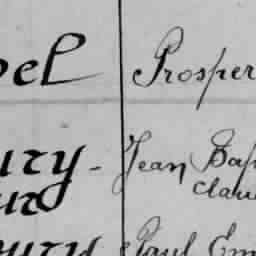 bel Prosper
ury - Jean Bap
ur Clau
oury Paul Em